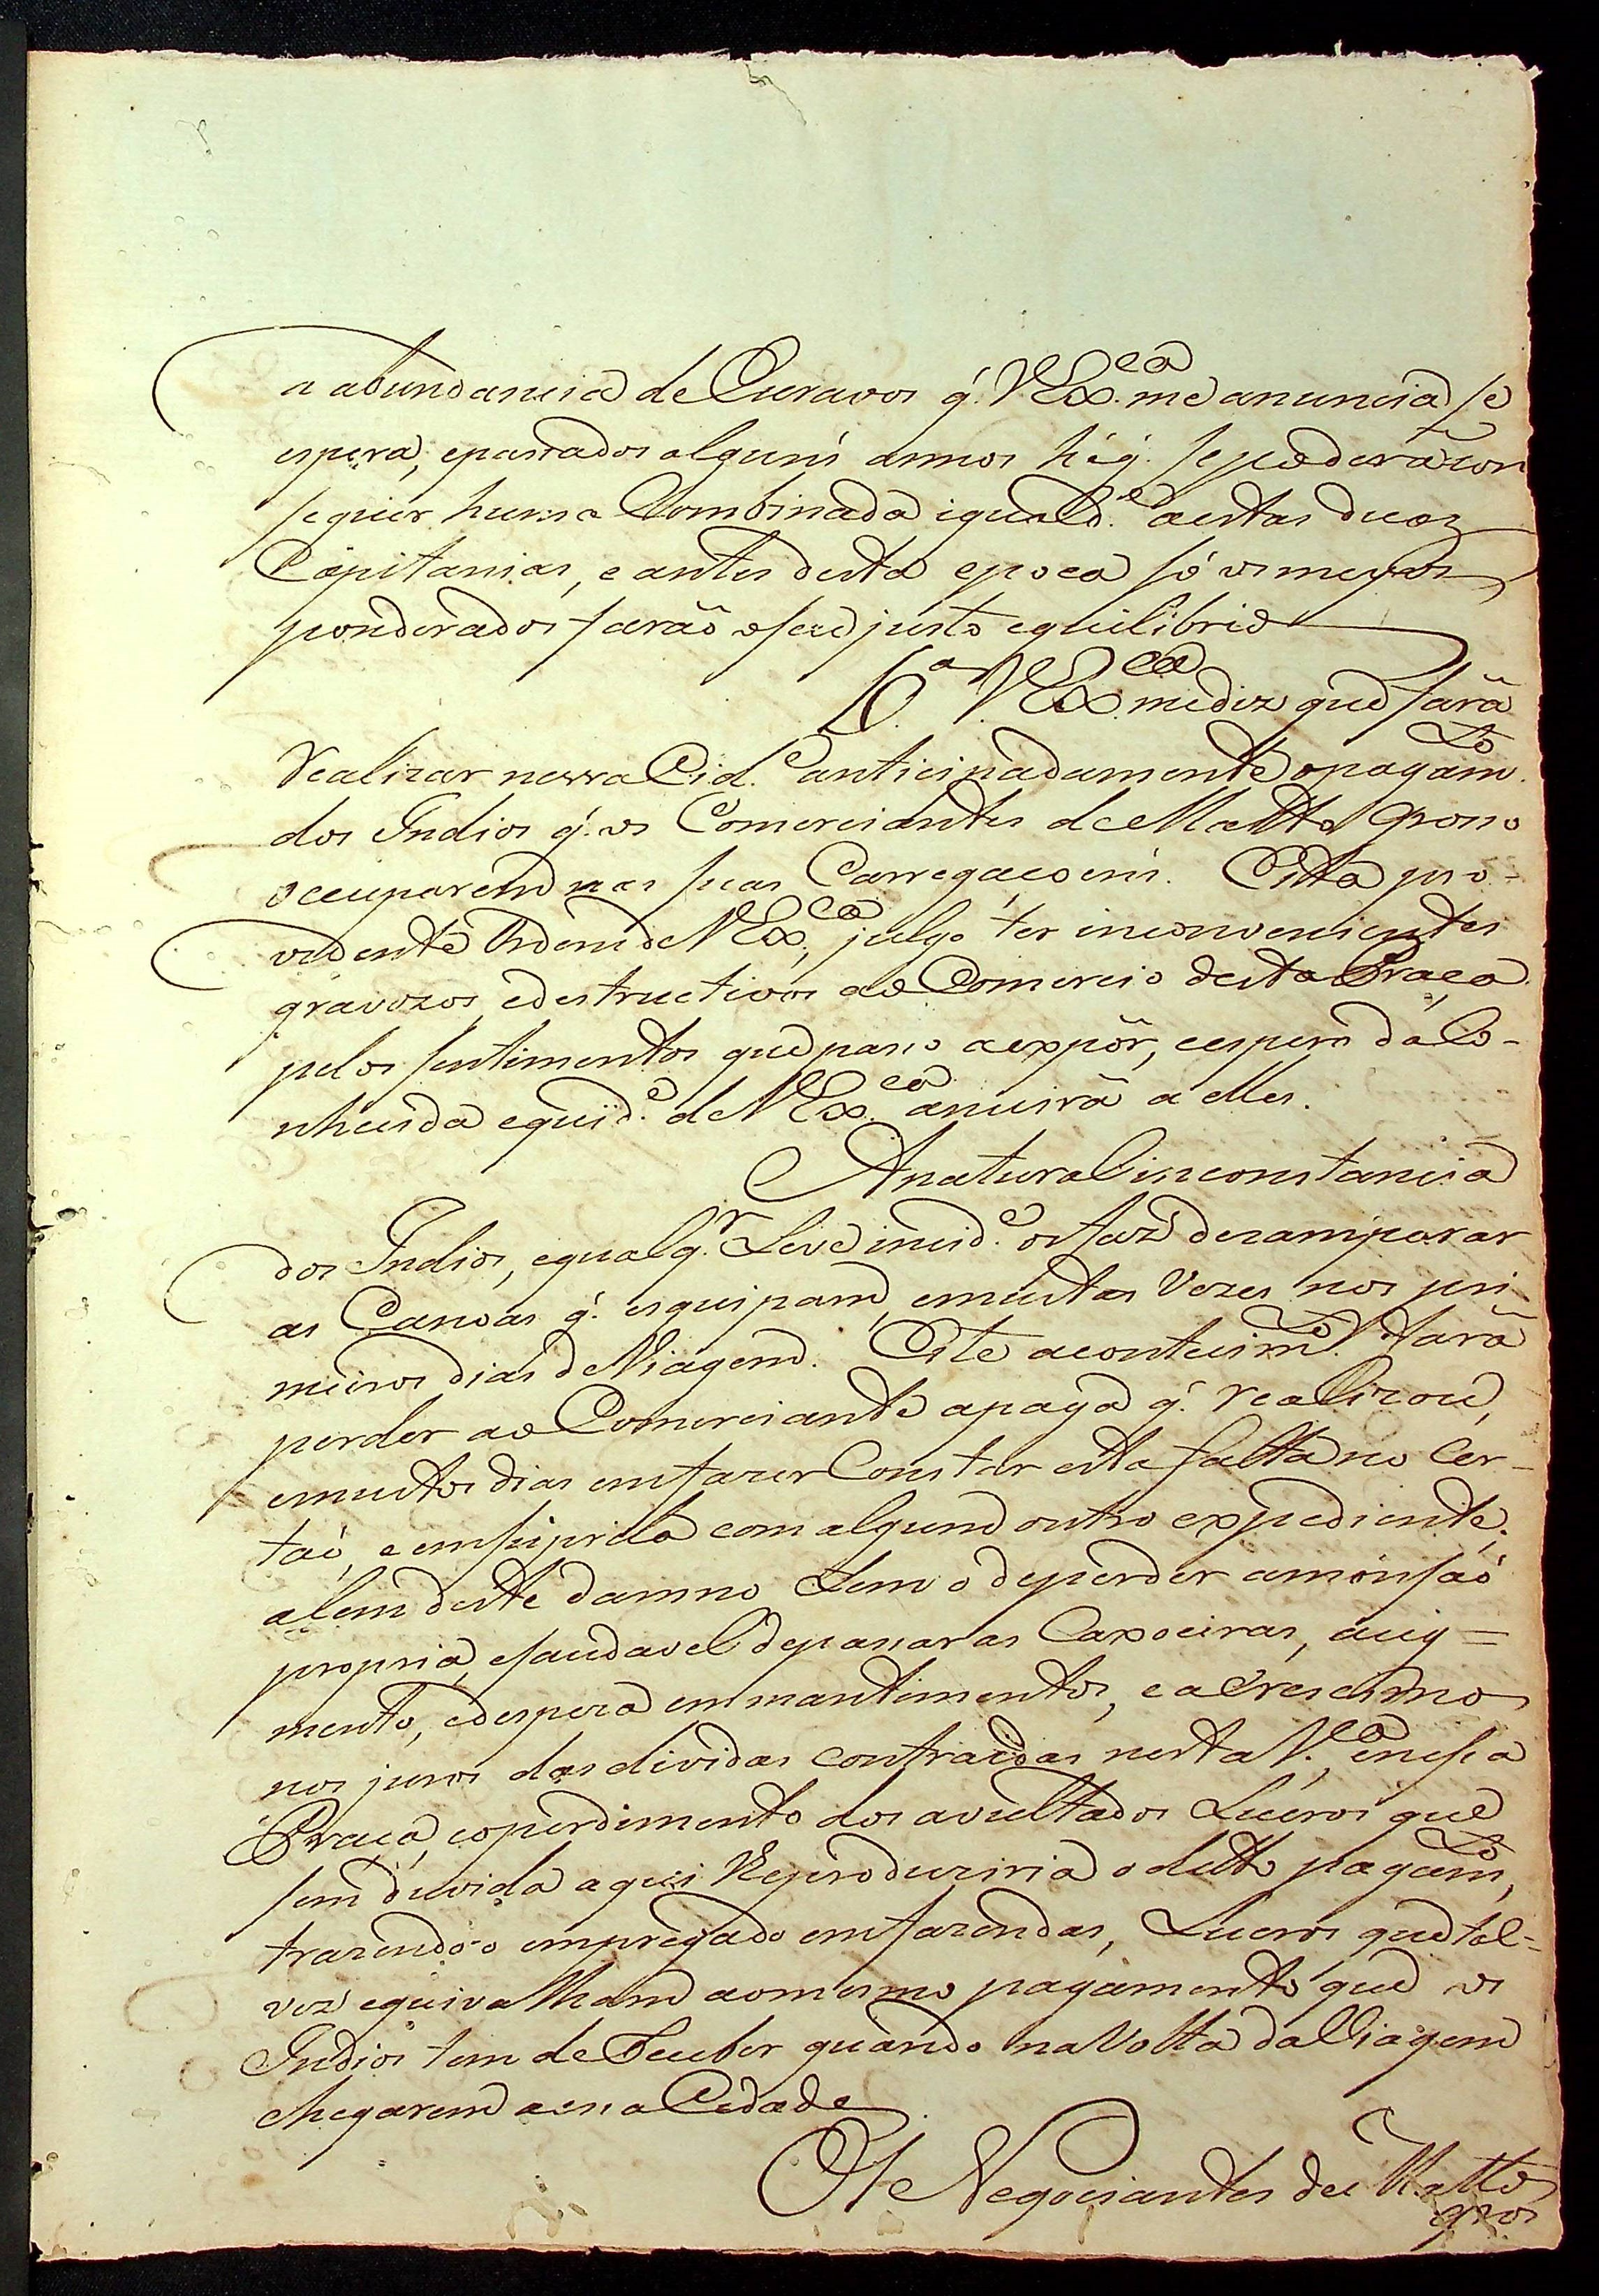 a abundancia de Escravos q̃. V.Ex.ca me anuncia se
espera, epassados alguns annos hé q̃. se poderá con
seguir huma Combinada iguald.e aestas duas
Capitanias, e antes desta epoca só os meyos
ponderados farão esse justo equilibrio
6.a V.Ex.ca mediz que fará
Realizar nessa Cid.e anticipadamente opagam.to
dos Indios q̃. os Comerciantes de Matto grosso
occuparem nas suas Carregaçoens. Esta pro=
vidente Ordem de V.Ex.ca, julgo ter inconvenientes
gravozos, edestructivos ao Comercio desta Praça
pelos sentimentos que passo aexpôr, eespero da Co-
nhecida equid.e de V.Ex.ca anuirá a elles.
A natural inconstancia
dos Indios, equalq.r Leve incid.e os faz desamparar
as Canoas q̃. esquipam, emuitas Vezes nos pri-
meiros dias de Viagem. Este acontecim.to fará
perder ao Comerciante apaga q̃. realizou,
emuitos dias emfazer Constar esta falta no Cer-
taõ, e emsuprila com algum outro expediente;
alem deste damno Tem o deperder amonsaõ
propria, esaudavel depassar as Caxoeiras, aug=
mento, edespeza em mantimentos, e acrescimo
nos juros das dividas contraidas nesta V.a, enessa
Praça, eoperdimento dos avultados Lucros que
sem duvida aqui Reproduziria o ditto pagam.to,
trazendo-o empregado emfazendas, Lucros que tal-
vez equivalham aomesmo pagamento que os
Indios tem de Receber quando na Volta da Viagem
chegarem aessa Cidade.
Os Negociantes de Matto
gros